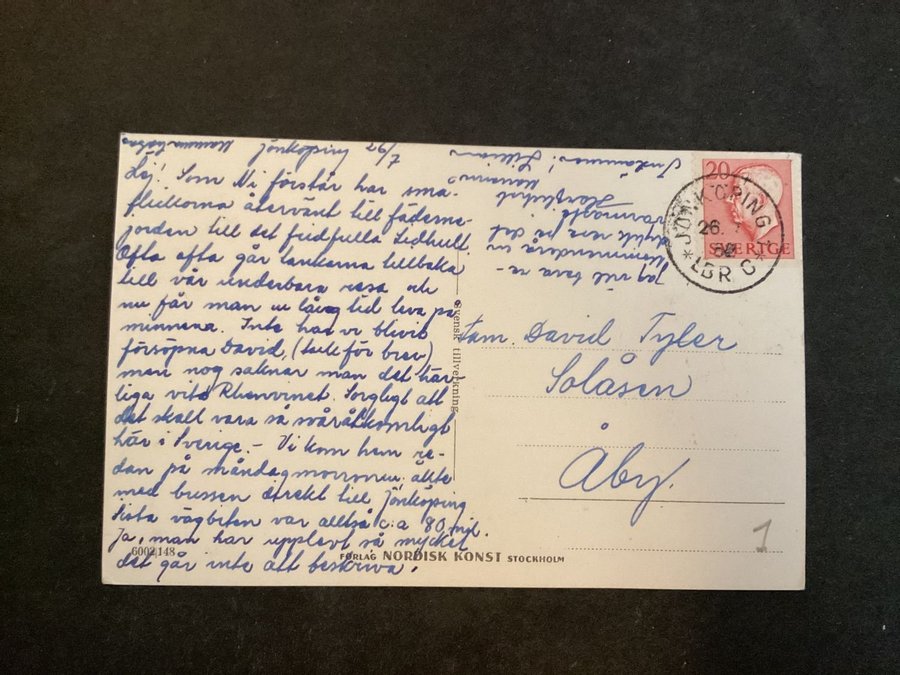 Jönköping 26/7
Hej! Som Ni förstår har små-
flickorna återvänt till fäderne-
jorden till det fridfulla Lidhult.
Ofta ofta går tankarna tillbaka
till vår underbara resa och
nu får man en lång tid leva på
minnena. Inte har vi blivit
försöpna David, (tack för brev)
men nog saknar man det här-
liga vita Rhenvinet. Sorgligt att
det skall vara så svåråtkomligt
här i Sverige. - Vi kom hem re-
dan på måndagmorronen. åkte
med bussen direkt till Jönköping
sista vägbiten var alltså c:a 80 mil.
Ja, man har upplevt så mycket
det går inte att beskriva.
Jag vill bara
Marianne
Lillian
20
SVERIGE
JÖNKÖPING
26.
LBR C
Svensk tillverkning
Fam. David Tyler
Solåsen
Åby.
1
6002148
FÖRLAG NORDISK KONST STOCKHOLM